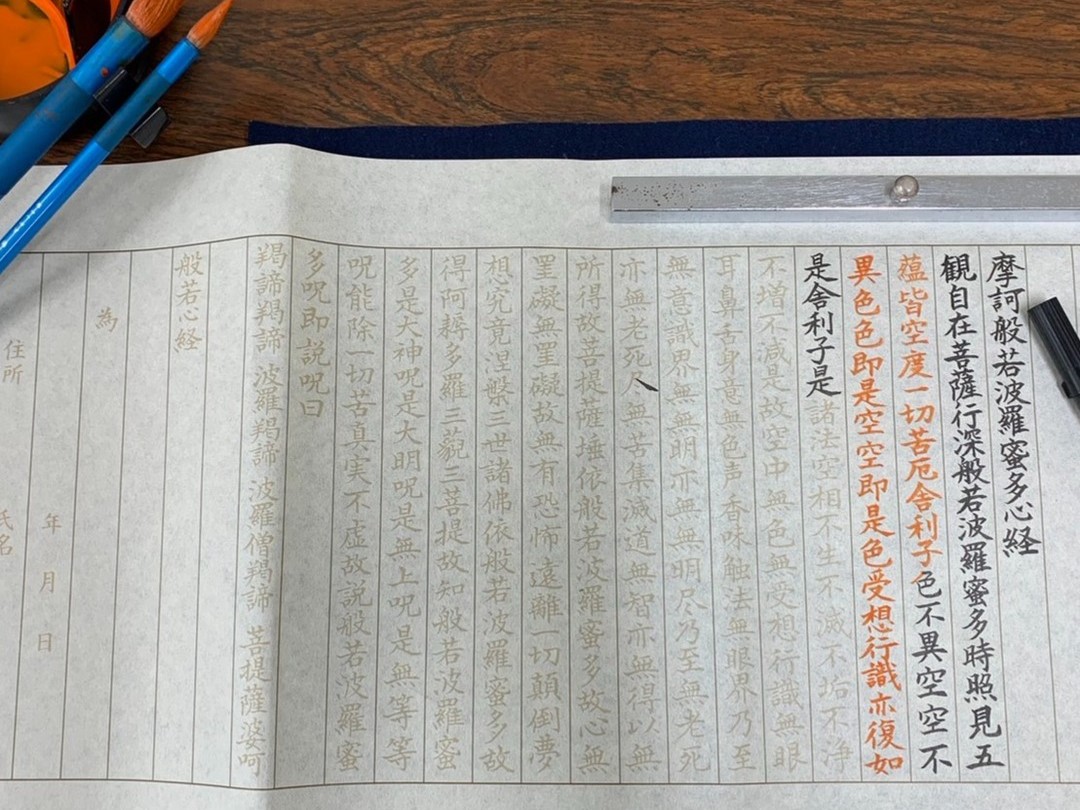 摩訶般若波羅蜜多心経
観自在菩薩行深般若波羅蜜多時照見五
蘊皆空度一切苦厄舎利子色不異空空不
異色色即是空空即是色受想行識亦復如
是舎利子是諸法空相不生不滅不垢不浄
不増不減是故空中無色無受想行識無眼
耳鼻舌身意無色声香味触法無眼界乃至
無意識界無無明亦無無明尽乃至無老死
亦無老死尽無苦集滅道無智亦無得以無
所得故菩提薩埵依般若波羅蜜多故心無
罣礙無罣礙故無有恐怖遠離一切顛倒夢
想究竟涅槃三世諸佛依般若波羅蜜多故
得阿耨多羅三藐三菩提故知般若波羅蜜
多是大神呪是大明呪是無上呪是無等等
呪能除一切苦真実不虚故説般若波羅蜜
多呪即説呪曰
羯諦羯諦 波羅羯諦 波羅僧羯諦 菩提薩婆訶
般若心経
為
年 月 日
住所
氏名